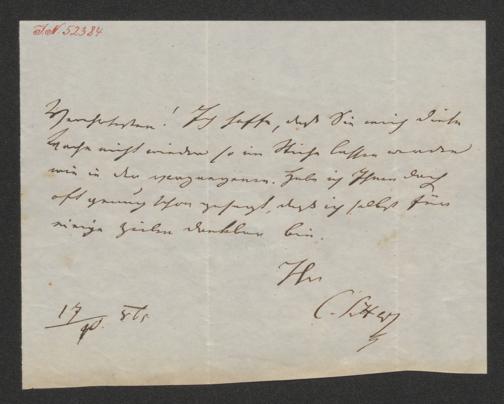 I.N. 52384
Verehrtester! Ich hoffe, daß Sie mich diese
Woche nicht wieder so im Stiche lassen werden
wie in der vergangenen. Habe ich Ihnen doch
oft genug schon gesagt, daß ich selbst für
einige Zeilen dankbar bin.
Ihr
17